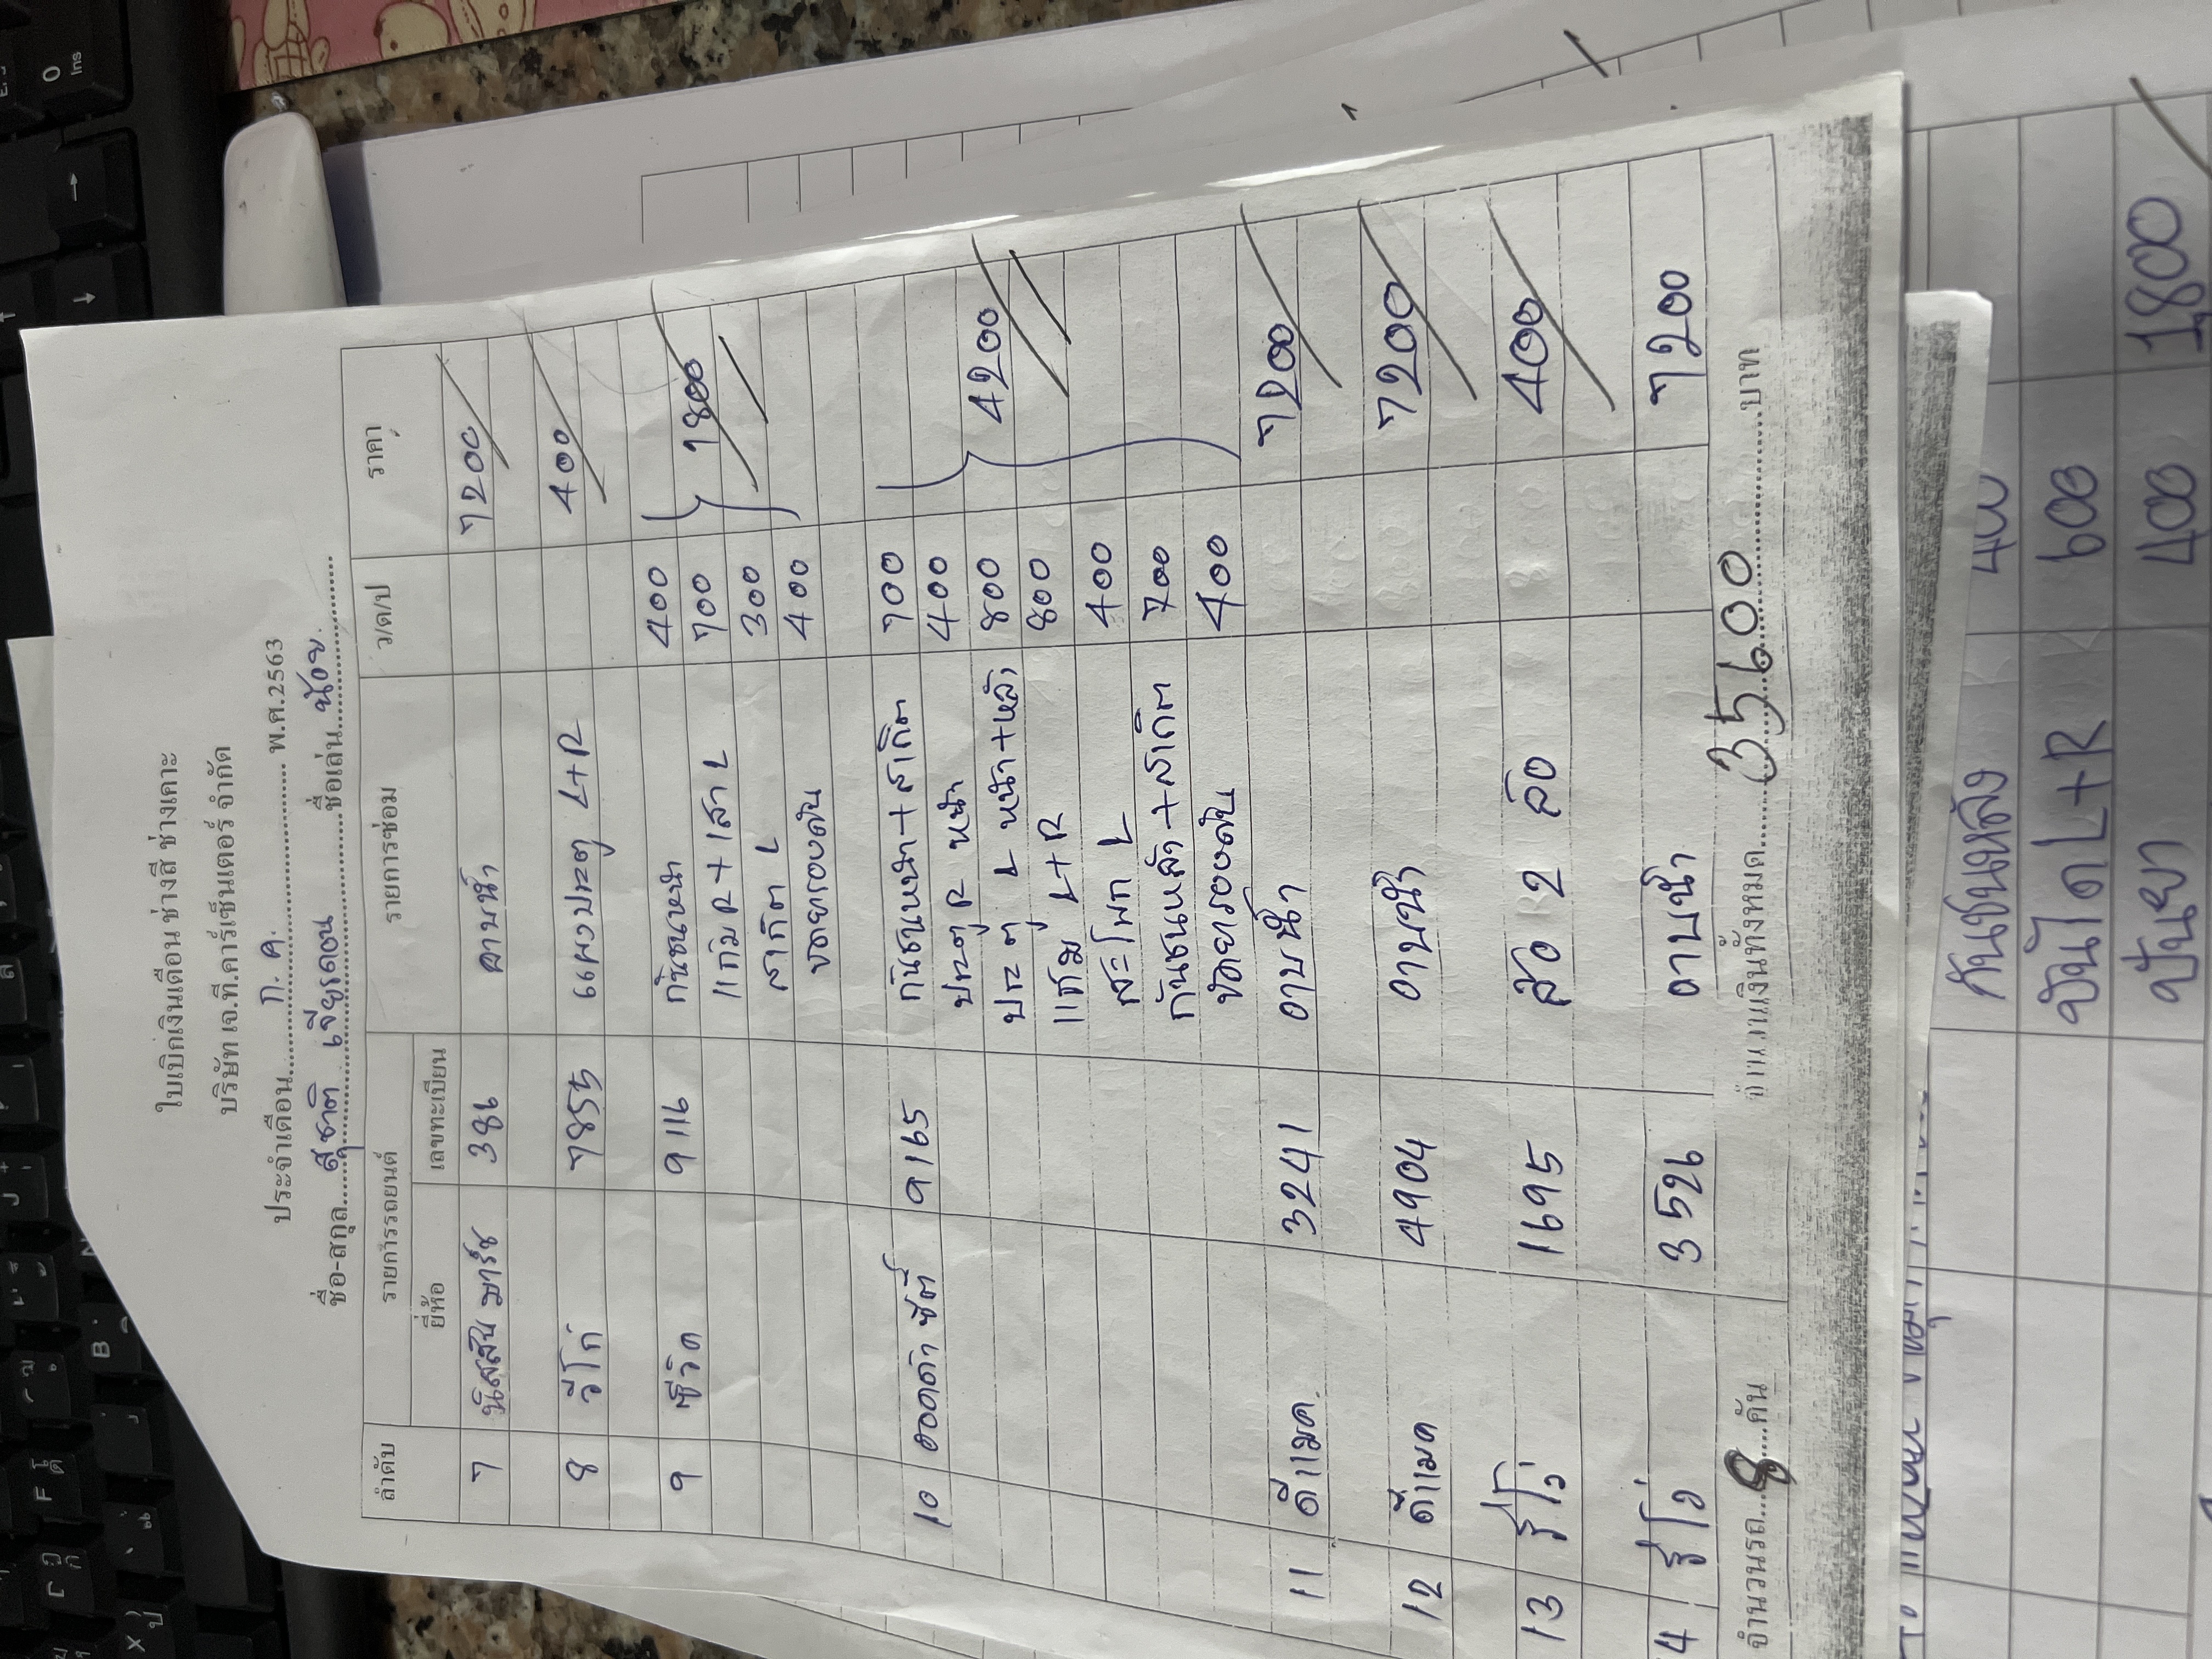 ใบเบิกเงินเดือน ช่างสี ช่างเคาะ
บริษัท เจ.ที.คาร์เซ็นเตอร์ จำกัด
ประจำเดือน ก.ค. พ.ศ.2563
ชื่อ-สกุล สุชาติ ชื่อเล่น น้อย
ลำดับ รายการรถยนต์ รายการซ่อม ว/ด/ป ราคา
ยี่ห้อ เลขทะเบียน
7 นิสสัน มาร์ช 386 อาบน้ำ 7200
8 วีโก่ 7855 แผงประตู L+R 400
9 ซีวิค 9116 กันชนหน้า 400
แก้ม R + เสา L 700 1800
สเกิต L 300
ขัดยารอบคัน 400
10 ฮอนด้า ซิตี้ 9165 กันชนหน้า + สเกิต 700
ประตู R หน้า 400
ประตู L หน้า+หลัง 800 4200
แก้ม L+R 800
สะโพก L 400
กันชนหลัง + สเกิต 700
ขัดยารอบคัน 400
11 ดีแมค 3241 อาบน้ำ 7200
12 ดีแมค 4904 อาบน้ำ 7200
13 รีโว่ 1695 ล้อ 2 ล้อ 400
4 รีโว่ 3526 อาบน้ำ 7200
จำนวนรถ 8 คัน จำนวนเงินทั้งหมด 35600 บาท
กันชนหลัง 400
บันได L+R 600
ปั่นยา 400 1800